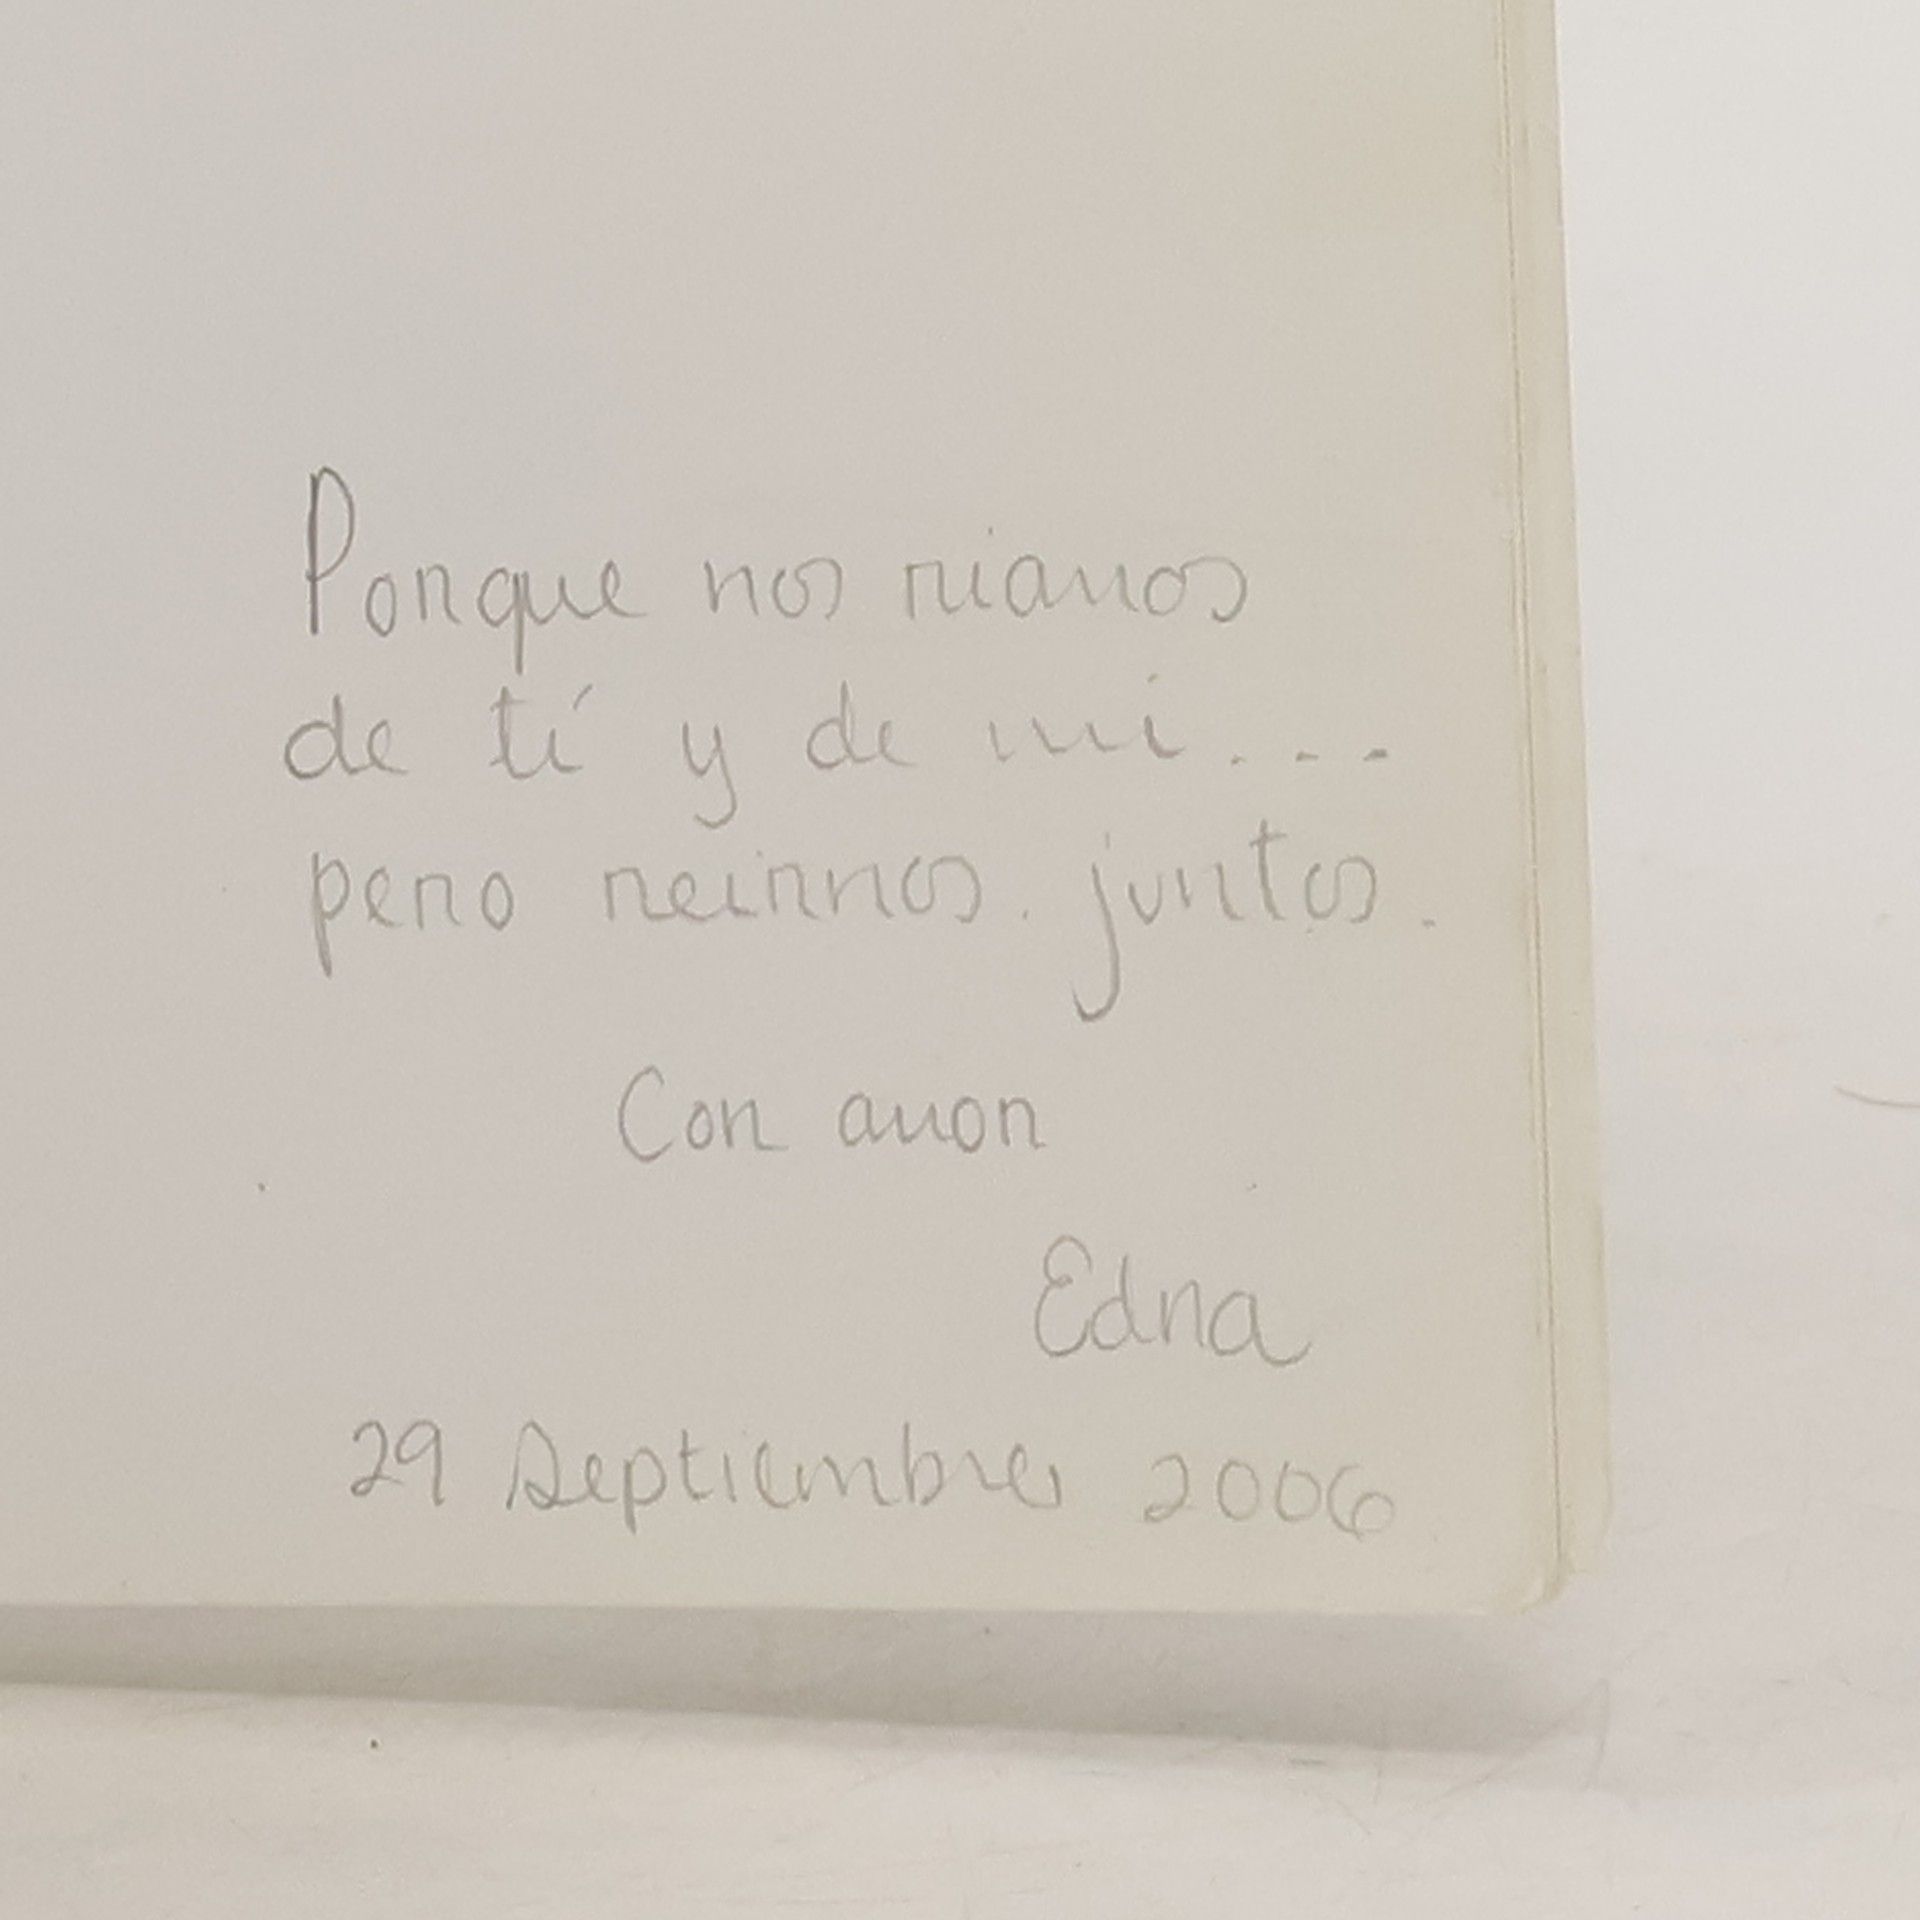 Porque nos riamos
de tí y de mi...
pero reirnos juntos.
Con amor
Edna
29 Septiembre 2006